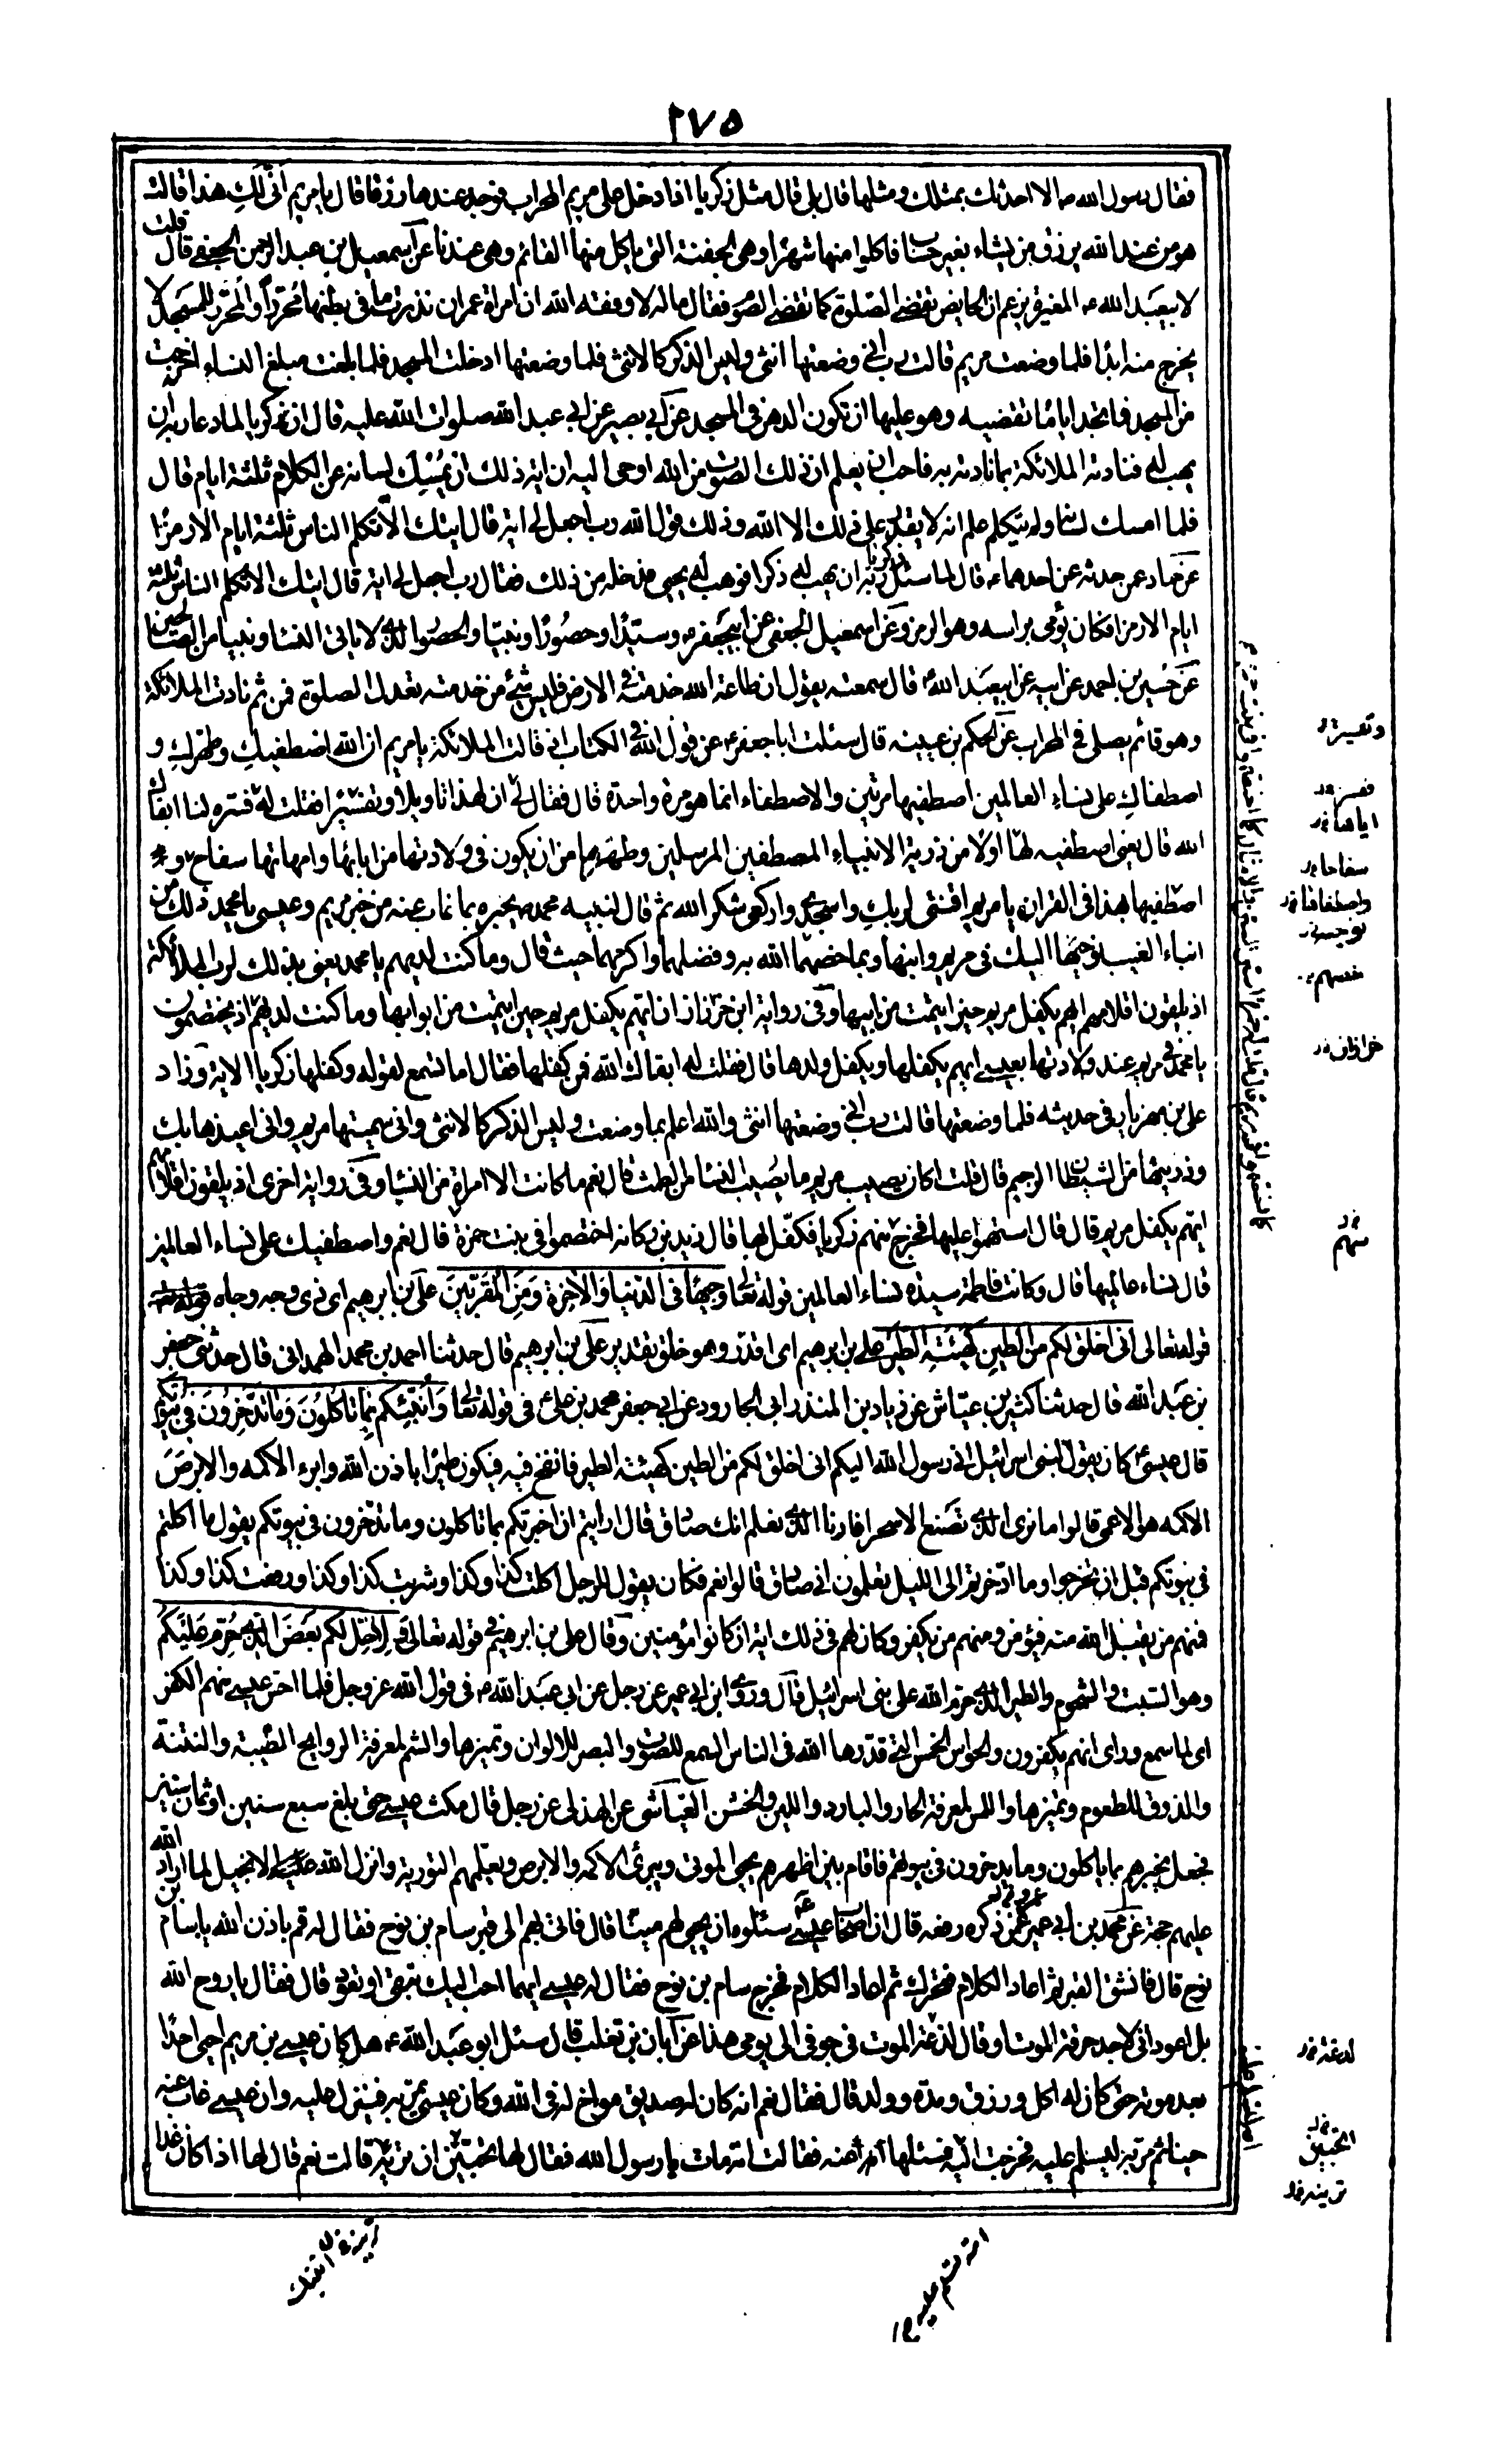 ٢٧٥
فقال رسول الله ص الا احدثك بمثلك ومثلها قال بلى قال مثل زكريا اذا دخل على مريم المحراب فوجد عندها رزقا قال يا مريم انى لكِ هذا قالت
هو من عند الله يرزق من يشاء بغير حساب فاكلوا منها شهرا وهى الجفنة التى ياكل منها القائم وهى عندنا عن اسمعيل بن عبد الرحمن الجعفى قال قلت
لابيعبد الله ع المغيرة يزعم ان الحايض تقضى الصلوة كما تقضى الصوم فقال ماله لا وفقه الله ان امراة عمران نذرت ما فى بطنها محررا والمحرر للمسجد لا
يخرج منه ابدا فلما وضعت مريم قالت رب انى وضعتها انثى وليس الذكر كالانثى فلما وضعتها ادخلت المسجد فلما بلغت مبلغ النساء اخرجت
من المسجد فما تجد اياما تقضيه وهو عليها ان تكون الدهر فى المسجد عن ابى بصير عن ابى عبد الله صلوات الله عليه قال ان زكريا لما دعا ربه ان
يهب له فنادته الملائكة بما نادته به فاحب ان يعلم ان ذلك الصوت من الله اوحى اليه ان اية ذلك ان يمسك لسانه عن الكلام ثلثة ايام قال
فلما امسك لسانه ولم يتكلم علم انه لا يقدر على ذلك الا الله وذلك قول الله رب اجعل لى اية قال ايتك الا تكلم الناس ثلثة ايام الا رمزا
عن حماد عمن حدثه عن احدهما ع قال لما سئل زكريا ربه ان يهب له ذكرا فوهب له يحيى فدخله من ذلك فقال رب اجعل لى اية قال ايتك الا تكلم الناس ثلثة
ايام الا رمزا فكان يؤمى براسه وهو الرمز وعن اسمعيل الجعفى عن ابيجعفر ع وسيدا وحصورا ونبيا والحصور الذى لا ياتى النساء ونبيا من الصالحين
عن حسين بن احمد عن ابيه عن ابيعبد الله ع قال سمعته يقول ان طاعة الله خدمته فى الارض فليس شئ من خدمته تعدل الصلوة فمن ثم نادت الملائكة
وهو قائم يصلى فى المحراب عن الحكم بن عيينه قال سئلت ابا جعفر ع عن قول الله فى الكتاب اذ قالت الملائكة يا مريم ان الله اصطفيكِ وطهركِ و
اصطفاكِ على نساء العالمين اصطفيها مرتين والاصطفاء انما هو مرة واحدة قال فقال لى ان لهذا تاويلا وتفسيرا فقلت له فسره لنا ابقاك
الله قال يعنى اصطفيه لها اولا من ذرية الانبياء المصطفين المرسلين وطهرها من ان يكون فى ولادتها من ابائها وامهاتها سفاح و
اصطفيها بهذا فى القران يا مريم اقنتى لربك واسجدى واركعى شكرا لله ثم قال لنبيه محمد ص يخبره بما غاب عنه من خبر مريم وعيسى يا محمد ذلك من
انباء الغيب نوحيها اليك فى مريم وابنها وبما خصهما الله به وفضلهما واكرمهما حيث قال وما كنت لديهم يا محمد يعنى بذلك لرب الملائكة
اذ يلقون اقلامهم ايهم يكفل مريم حين ايتمت من ابيها وفى رواية ابن خرزاز انا ايهم يكفل مريم حين ايتمت من ابويها وما كنت لديهم اذ يختصمون
يا محمد فى مريم عند ولادتها بعيسى ايهم يكفلها ويكفل ولدها قال فقلت له ابقاك الله فمن كفلها فقال اما تسمع لقوله وكفلها زكريا الاية وزاد
على بن مهزيار فى حديثه فلما وضعتها قالت رب انى وضعتها انثى والله اعلم بما وضعت وليس الذكر كالانثى وانى سميتها مريم وانى اعيذها بك
وذريتها من الشيطان الرجيم قال قلت اكان يصيب مريم ما يصيب النساء من الطمث قال نعم ما كانت الا امراة من النساء وفى رواية اخرى اذ يلقون اقلامهم
ايهم يكفل مريم قال قال استهموا عليها فخرج منهم زكريا فكفل بها قال زيد بن ركانه اختصموا فى بنت حمزة قال نعم واصطفيك على نساء العالمين
قال نساء عالميها قال وكانت فاطمة سيدة نساء العالمين قوله تعالى وجيها فى الدنيا والاخرة ومن المقربين على بن ابرهيم اى ذى وجه وجاه
قوله تعالى انى اخلق لكم من الطين كهيئة الطير على بن ابرهيم اى اقدر وهو خلق تقدير على بن ابرهيم قال حدثنا احمد بن محمد الهمدانى قال حدثنى جعفر
بن عبد الله قال حدثنا كثير بن عياش عن زياد بن المنذر ابى الجارود عن ابى جعفر محمد بن على ع فى قوله تعالى وانبئكم بما تاكلون وما تدخرون فى بيوتكم
قال عيسى ع كان يقول لبنى اسرائيل انى رسول الله اليكم انى اخلق لكم من الطين كهيئة الطير فانفخ فيه فيكون طيرا باذن الله وابرء الاكمه والابرص
الاكمه هو الاعمى قالوا ما نرى الذى تصنع الا سحرا فارنا اية نعلم انك صادق قال ارايتم ان اخبرتكم بما تاكلون وما تدخرون فى بيوتكم يقول ما اكلتم
فى بيوتكم قبل ان تخرجوا وما ادخرتم الى الليل تعلمون انى صادق قالوا نعم فكان يقول للرجل اكلت كذا وكذا وشربت كذا وكذا ورفعت كذا وكذا
فمنهم من يقبل منه فيؤمن ومنهم من يكفر وكان لهم فى ذلك اية ان كانوا مؤمنين وقال على بن ابرهيم فى قوله تعالى ولاحل لكم بعض الذى حرم عليكم
وهو السبت والشحوم والطير الذى حرم الله على بنى اسرائيل قال وروى ابن ابى عمير عن رجل عن ابى عبد الله ع فى قول الله عز وجل فلما احس عيسى منهم الكفر
اى لما سمع وراى انهم يكفرون والحواس الخمس التى قدرها الله فى الناس السمع للصوت والبصر للالوان وتميزها والشم لمعرفة الروايح الطيبة والنتنة
والذوق للطعوم وتميزها واللمس لمعرفة الحار والبارد واللين والخشن العياشى عن الهذلى عن رجل قال مكث عيسى حتى بلغ سبع سنين او ثمان سنين
فجعل يخبرهم بما ياكلون وما يدخرون فى بيوتهم فاقام بين اظهرهم يحيى الموتى ويبرئ الاكمه والابرص ويعلمهم التورية وانزل الله عليه الانجيل لما اراد الله
عليهم حجة عن محمد بن ابى عمير عمن ذكره رفعه قال ان اصحاب عيسى سئلوه ان يحيى لهم ميتا قال فاتى بهم الى قبر سام بن نوح فقال له قم باذن الله يا سام بن
نوح قال فانشق القبر ثم اعاد الكلام فتحرك ثم اعاد الكلام فخرج سام بن نوح فقال له عيسى ايهما احب اليك تبقى او تعود قال فقال يا روح الله
بل اعود انى لاجد حرقة الموت او قال لذعة الموت فى جوفى الى يومى هذا عن ابان بن تغلب قال سئل ابو عبد الله ع هل كان عيسى بن مريم احيى احدا
بعد موته حتى كان له اكل ورزق ومدة وولد قال فقال نعم انه كان له صديق مواخ له فى الله وكان عيسى يمر به فينزل عليه وان عيسى غاب عنه
حينا ثم مر به ليسلم عليه فخرجت اليه فسئلها امه عنه فقالت امه مات يا رسول الله فقال لها اتحبين ان تريه قالت نعم قال لها اذا كان غدا
وتفسيرا
فسره
اياها
سفاحا
واصطفافا
نوحيه
خصهم
خرازان
منهم
لدغة
اتحبين
ترينه